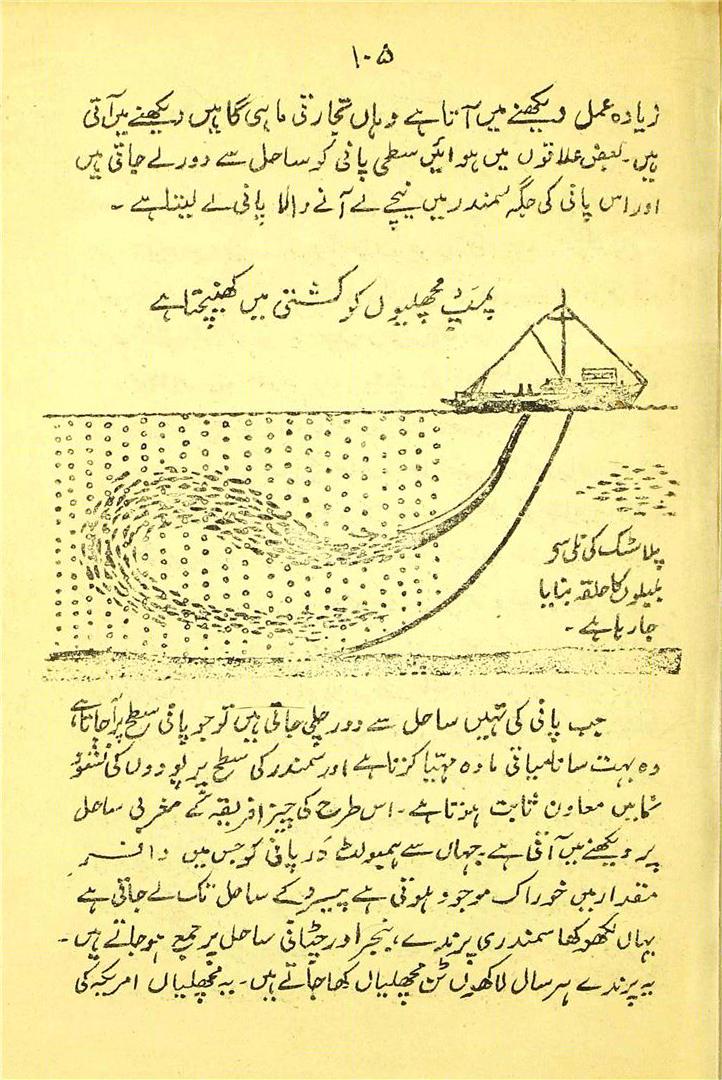 ۱۰۵
زیادہ عمل دیکھنے میں آتا ہے وہاں تجارتی ماہی گاہیں دیکھنے میں آتی
ہیں۔ بعض علاقوں میں ہوائیں سطحی پانی کو ساحل سے دور لے جاتی ہیں
اور اس پانی کی جگہ سمندر میں نیچے سے آنے والا پانی لے لیتا ہے ۔
پمپ مچھلیوں کو کشتی میں کھینچتا ہے
پلاسٹک کی نلی سے
بلبلوں کا حلقہ بنایا
جا رہا ہے ۔
جب پانی کی تہیں ساحل سے دور چلی جاتی ہیں تو جو پانی سطح پر آ جاتا ہے
وہ بہت سا نامیاتی مادہ مہیا کرتا ہے اور سمندر کی سطح پر پودوں کی نشوو
نما میں معاون ثابت ہوتا ہے ۔ اس طرح کی چیز افریقہ کے مغربی ساحل
پر دیکھنے میں آتی ہے ۔ جہاں سے ہمبولٹ رَو پانی کو جس میں وافر
مقدار میں خوراک موجود ہوتی ہے پیرو کے ساحل تک لے جاتی ہے
یہاں لکھوکھا سمندری پرندے ، بنجر اور چٹانی ساحل پر جمع ہو جاتے ہیں ۔
یہ پرندے ہر سال لاکھوں ٹن مچھلیاں کھا جاتے ہیں ۔ یہ مچھلیاں امریکہ کی